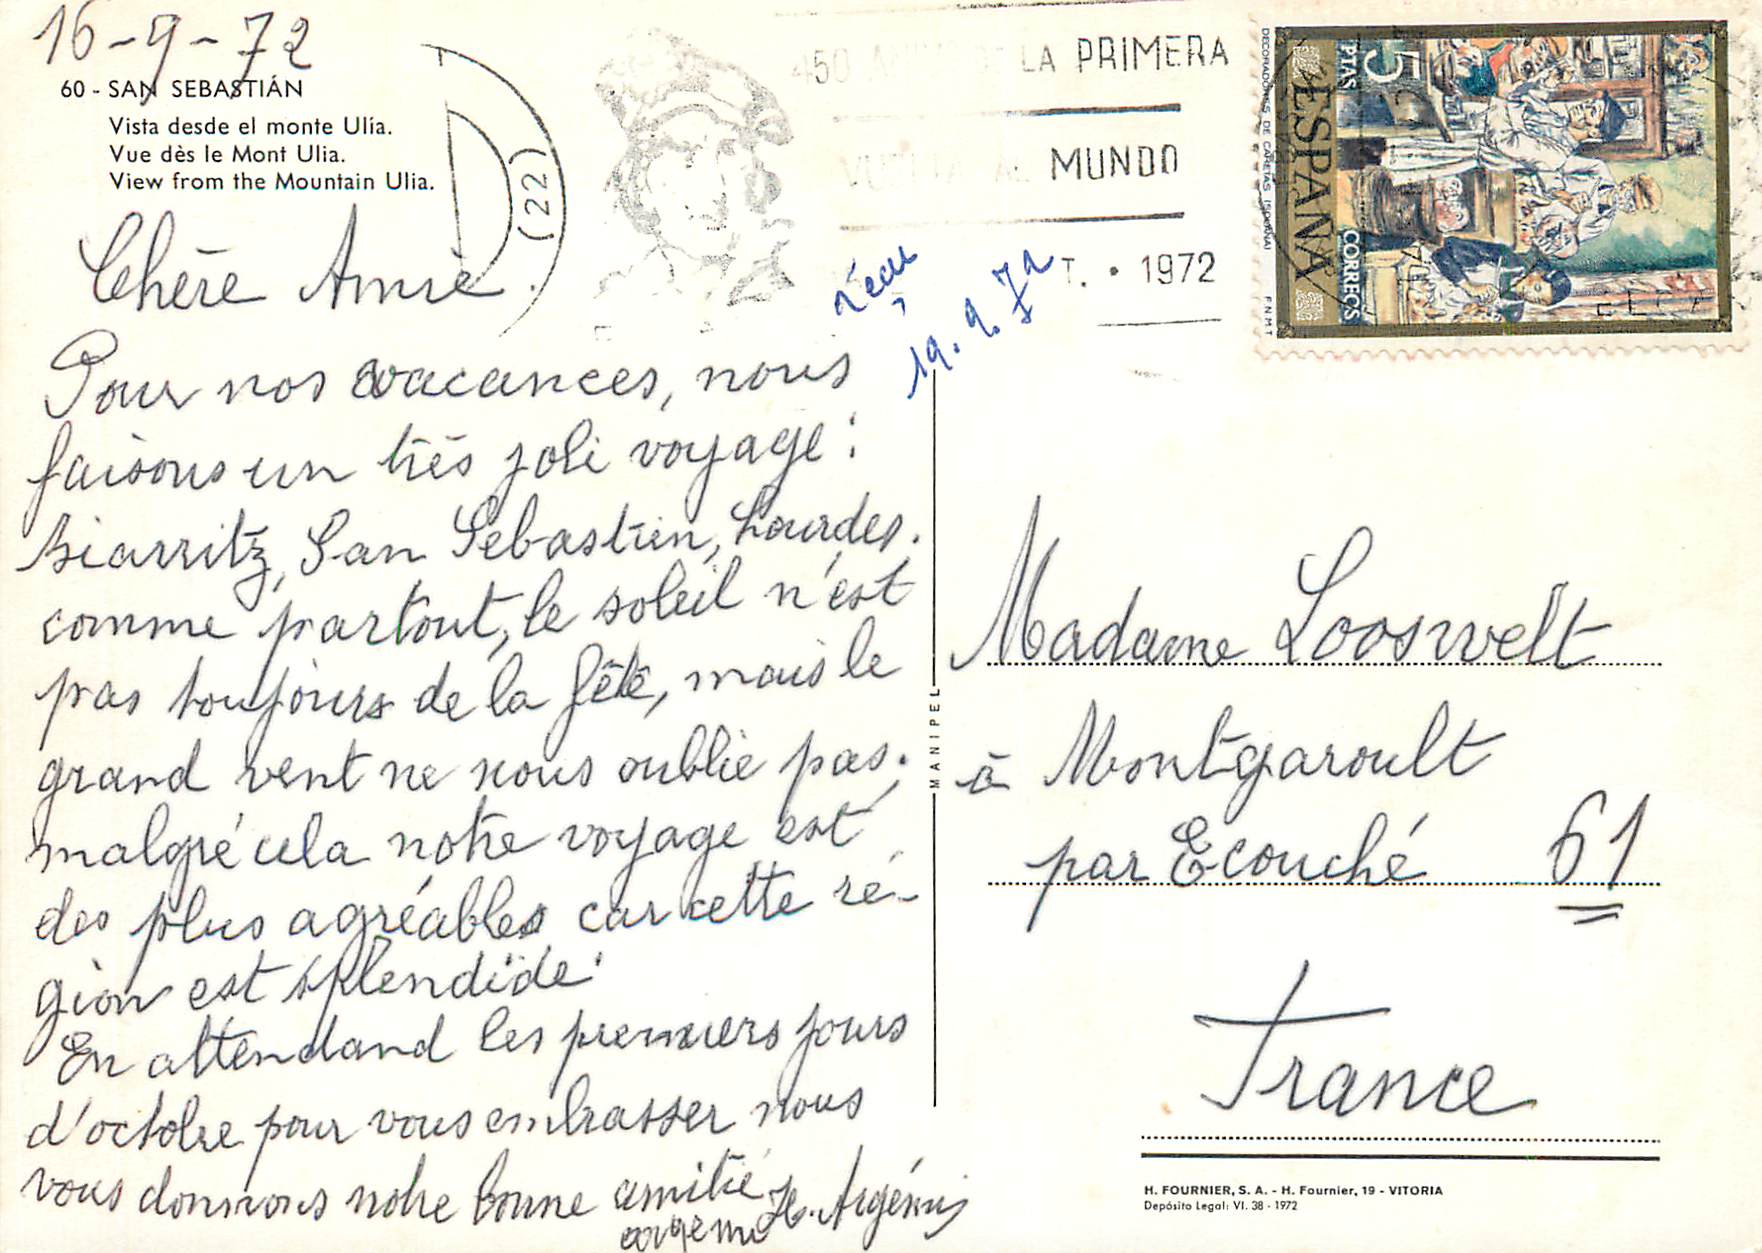 16-9-72
60 - SAN SEBASTIÁN
Vista desde el monte Ulía.
Vue dès le Mont Ulia.
View from the Mountain Ulia.
(22)
450 LA PRIMERA
VUELTA AL MUNDO
T. • 1972
DECORADORES DE CARETAS (SOLANA)
F.N.M.T.
ESPAÑA
CORREOS
5 PTAS
19.9.72
Chère Amie.
Pour nos vacances, nous
faisons un très joli voyage :
Biarritz, San Sebastien, Lourdes.
comme partout, le soleil n'est
pas toujours de la fête, mais le
grand vent ne nous oublie pas;
malgré cela notre voyage est
des plus agréables car cette ré-
gion est splendide.
En attendand les premiers jours
d'octobre pour vous embrasser nous
vous donnons notre bonne amitié
H. Argémis
MANIPEL
Madame Looswelt
à Montgaroult
par Ecouché 61
France
H. FOURNIER, S. A. - H. Fournier, 19 - VITORIA
Depósito Legal: VI. 38 - 1972